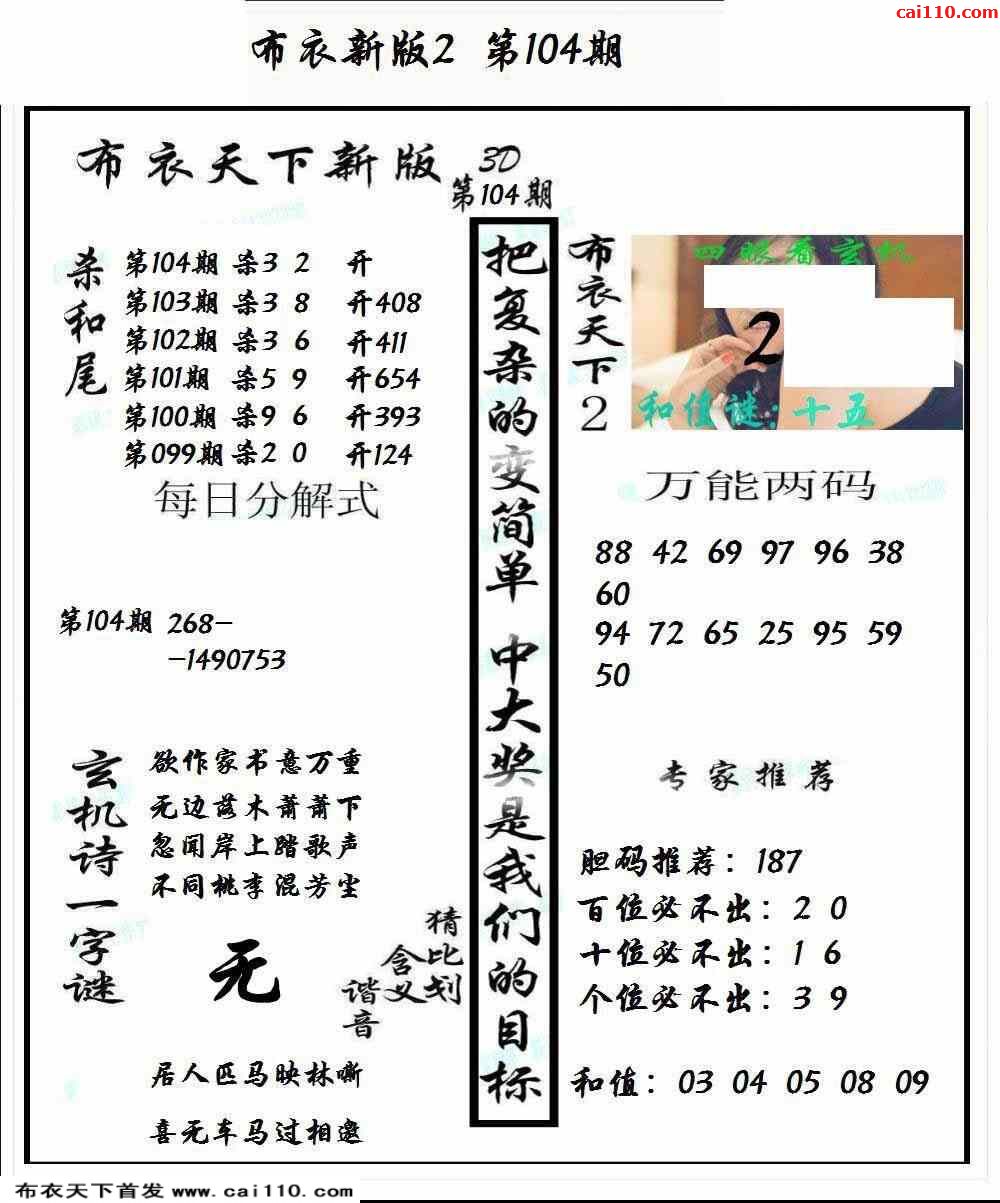 cai110.com
布衣新版2 第104期
布衣天下新版
3D
第104期
杀和尾
第104期 杀3 2 开
第103期 杀3 8 开408
第102期 杀3 6 开411
第101期 杀5 9 开654
第100期 杀9 6 开393
第099期 杀2 0 开124
每日分解式
第104期 268-
-1490753
玄机诗一字谜
欲作家书意万重
无边落木萧萧下
忽闻岸上踏歌声
不同桃李混芳尘
无
猜比划
含义
谐音
居人匹马映林嘶
喜无车马过相邀
把复杂的变简单 中大奖是我们的目标
布衣天下2
四眼看玄机
2
和值谜:十五
万能两码
88 42 69 97 96 38
60
94 72 65 25 95 59
50
专家推荐
胆码推荐：187
百位必不出：2 0
十位必不出：1 6
个位必不出：3 9
和值：03 04 05 08 09
布衣天下首发 www.cai110.com